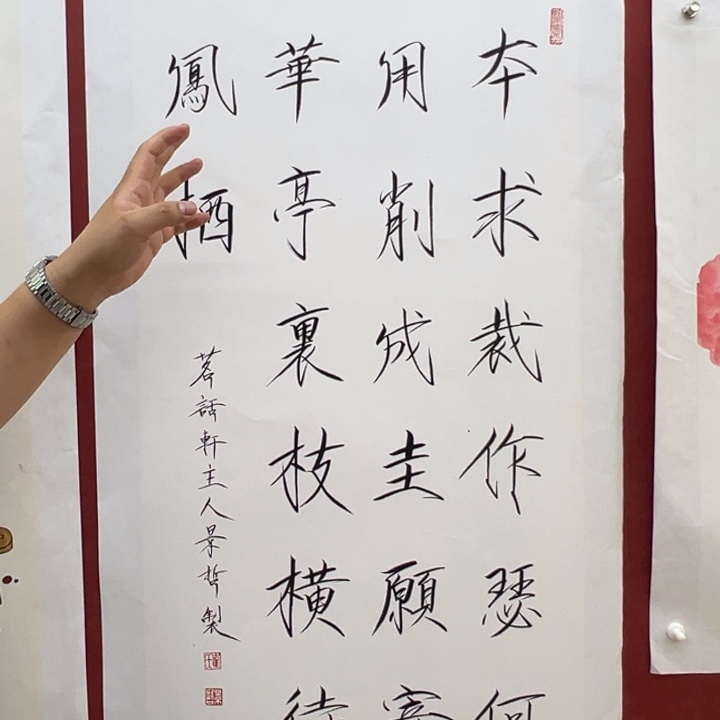 本求裁作瑟何
用削成圭願寄
華亭裏枝橫待
鳳栖
茗話軒主人景哲製